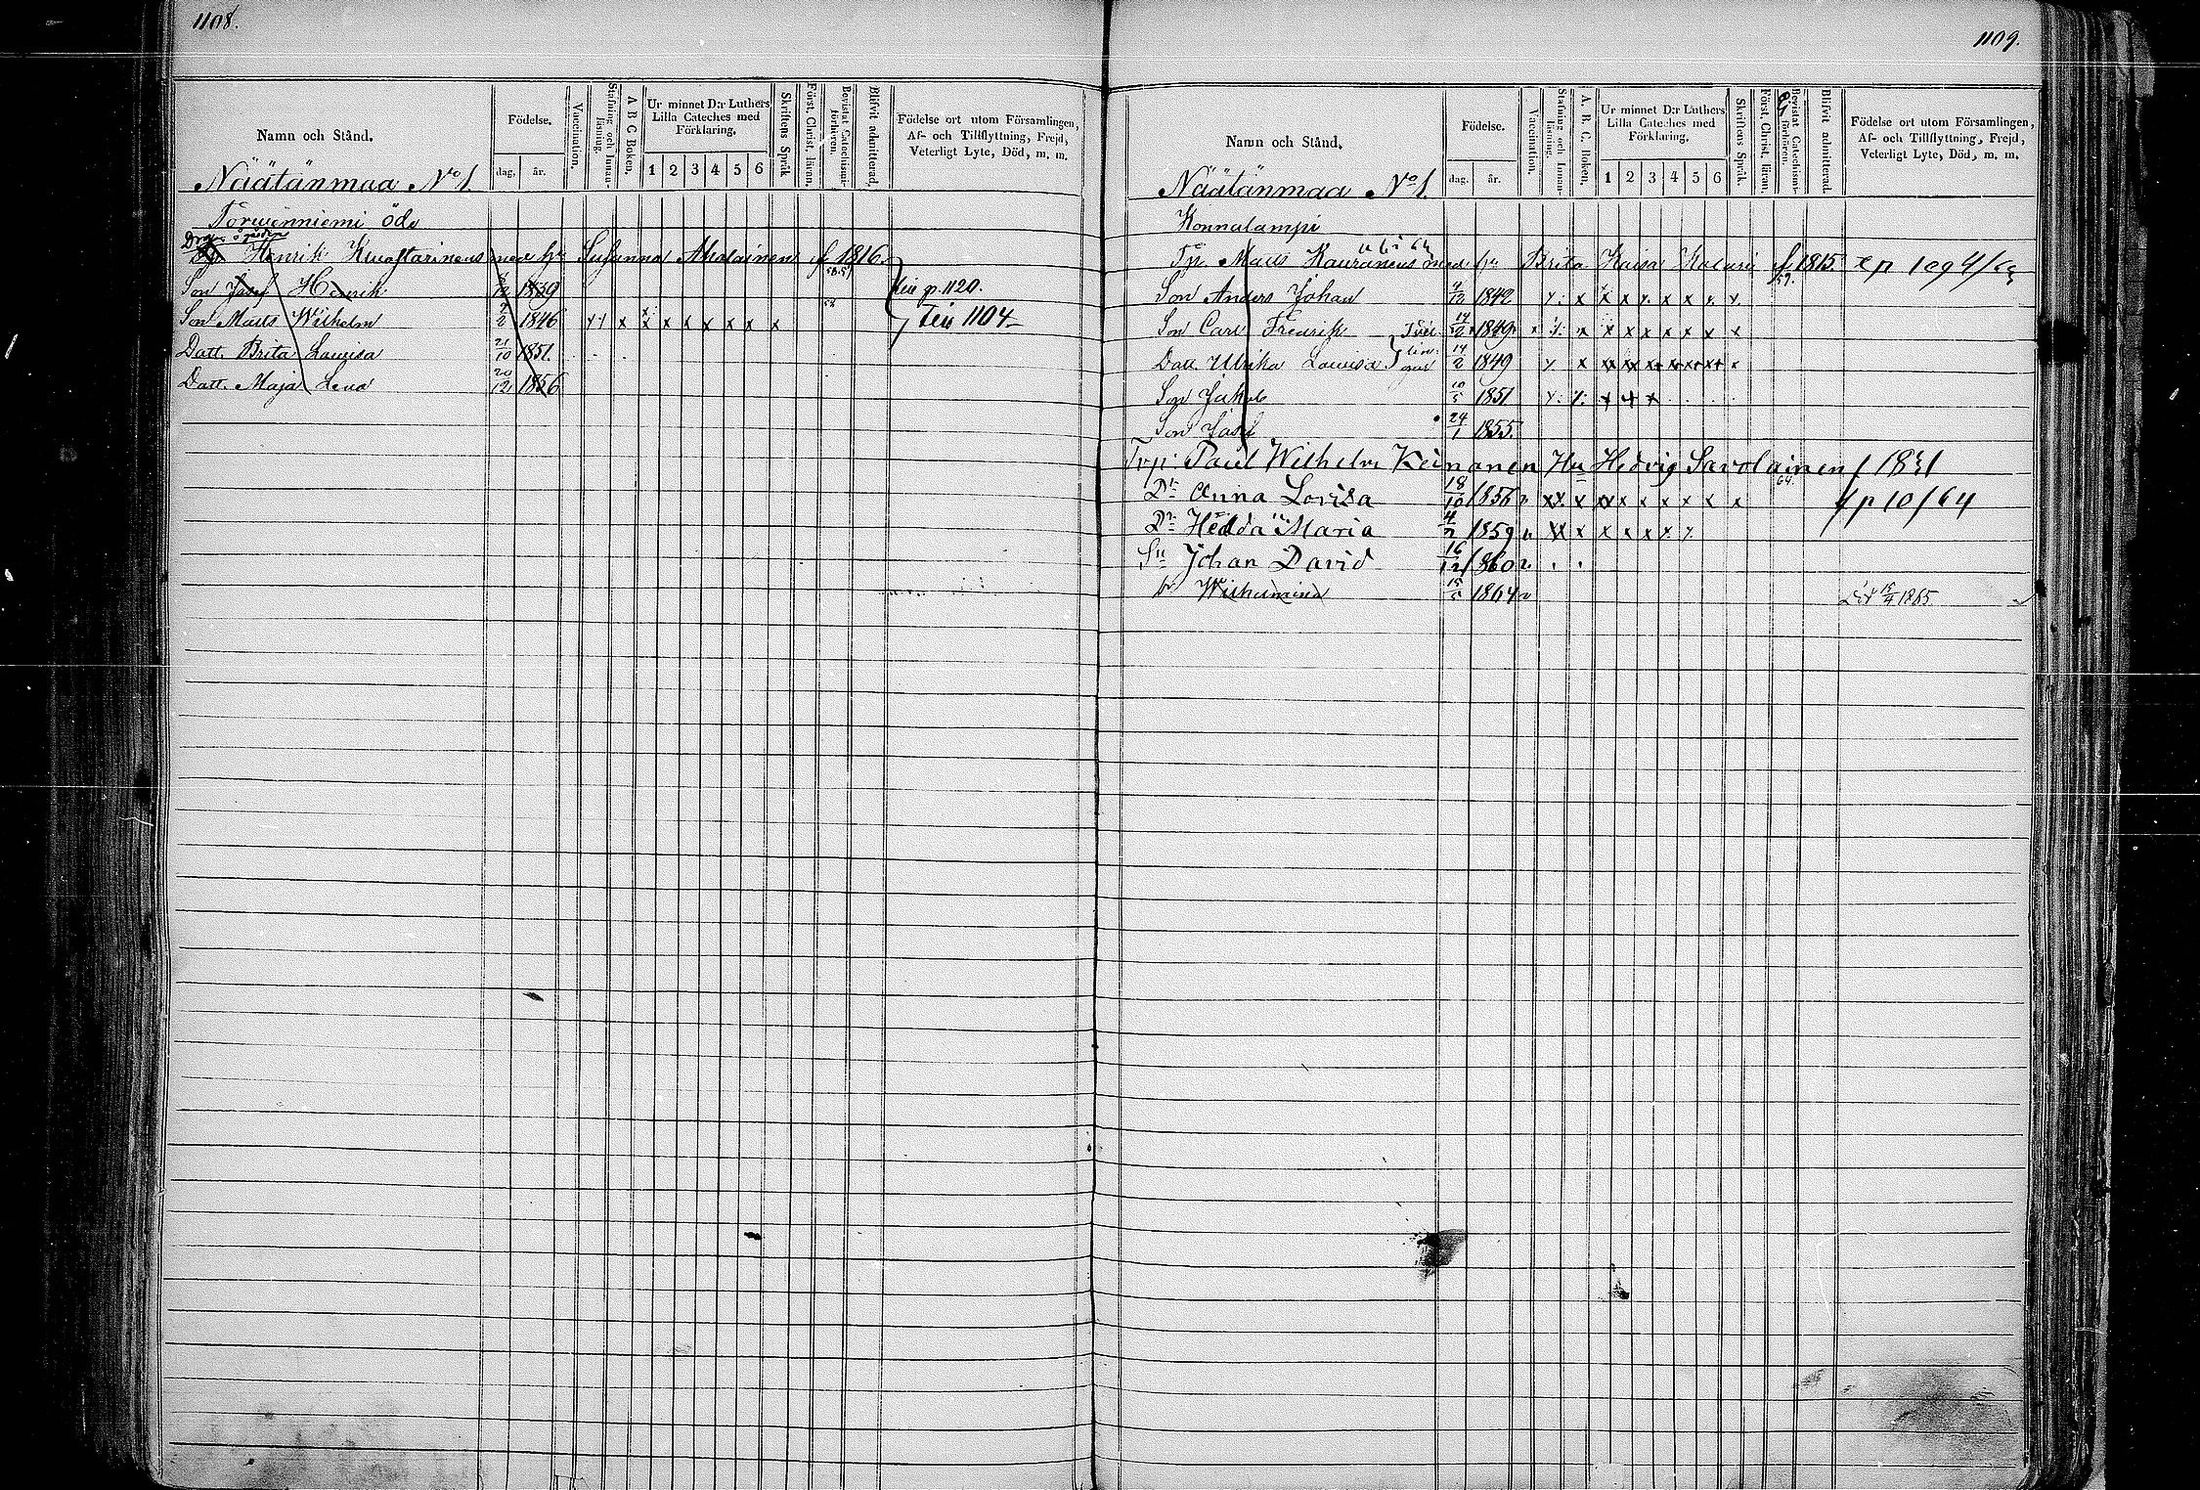 1108.
Namn och Stånd.
Födelse.
dag.
år.
Vaccination.
Stafning och Innanläsning.
A B C Boken.
Ur minnet D:r Luthers Lilla Cateches med Förklaring.
1 2 3 4 5 6
Skriftens Språk
Först. Christ. läran.
Bevistat Catechismiförhören.
Blifvit admitterad.
Födelse ort utom Församlingen, Af- och Tillflyttning, Frejd, Veterligt Lyte, Död, m. m.
Näätänmaa No 1.
Torwinniemi öde
Henrik med hr Susanna f 1816.
Son Henrik 1839 p. 1120.
Son Matts Wilhelm 2 1846 x x x x x x x x 1104
Datt. Brita Lowisa 21/10 1851.
Datt. Maja Lena 20/12 1856
1109.
Namn och Stånd.
Födelse.
dag.
år.
Vaccination.
Stafning och Innanläsning.
A. B. C. Boken.
Ur minnet D:r Luthers Lilla Cateches med Förklaring.
1 2 3 4 5 6
Skriftens Språk.
Först. Christ. läran.
Bevistat Catechismi förhören.
Blifvit admitterad.
Födelse ort utom Församlingen, Af- och Tillflyttning, Frejd, Veterligt Lyte, Död, m. m.
Näätänmaa No 1.
Konnalampi
Tp. Matts Kauranens med hr Brita Kaisa f 1815.
Son Anders Johan 1842 x x x x x x
Son Carl Fredrik 14/2 1849 x x x x x x x x
Datt. Ulrika Lowisa 14/2 1849 x x x x x x x x
Son Jakob 10/5 1851 x x x
Son 24/1 1855.
Paul Wilhelm Keinanen Hu Hedvig Savolainen f 1831
Dr Anna Lovisa 18/10 1856 x x x x x x x x p 10/64
Dr Hedda Maria 1859 x x x x x
Sn Johan David 16/12 1860
Wilhelmina 15/5 1864
Död 1865